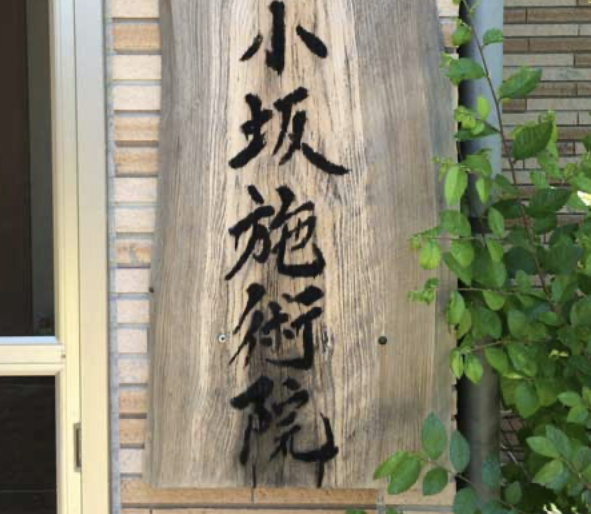 小坂施術院